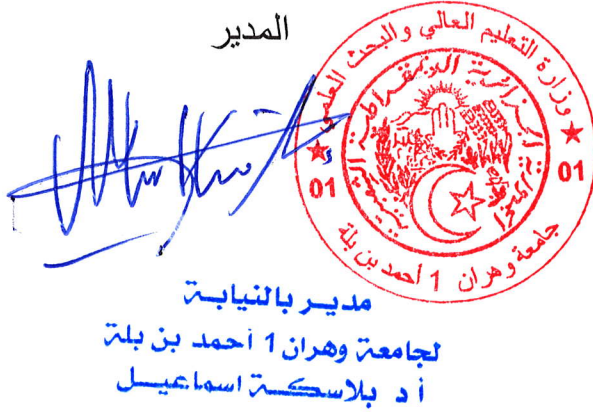 المدير
وزارة التعليم العالي والبحث العلمي
الجمهورية الجزائرية الديمقراطية الشعبية
01
01
جامعة وهران 1 أحمد بن بلة
مدير بالنيابة
لجامعة وهران 1 أحمد بن بلة
أ د بلاسكة اسماعيل